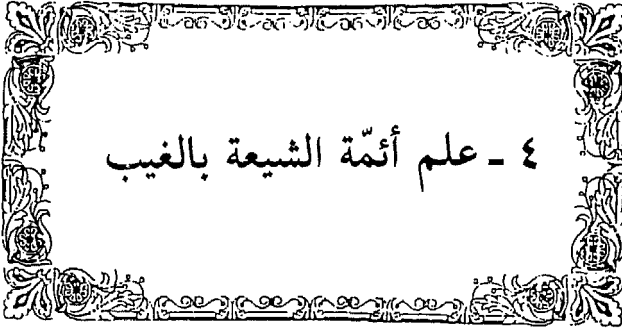 ٤ ـ علم أئمّة الشيعة بالغيب